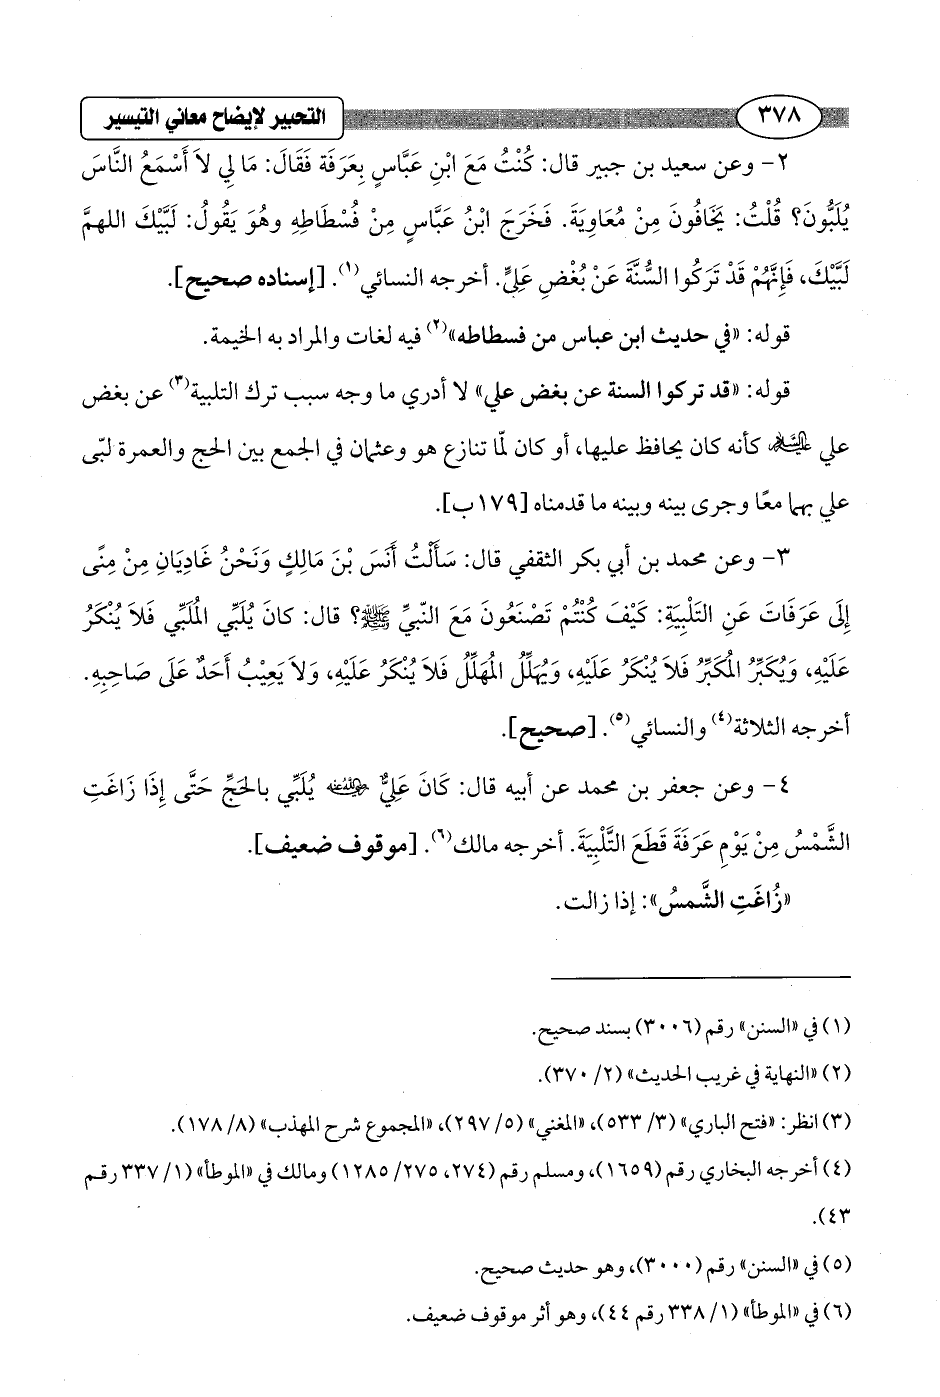 ٣٧٨
التحبير لإيضاح معاني التيسير
٢- وعن سعيد بن جبير قال: كُنْتُ مَعَ ابْنِ عَبَّاسٍ بِعَرَفَةَ فَقَالَ: مَا لِي لاَ أَسْمَعُ النَّاسَ
يُلَبُّونَ؟ قُلْتُ: يَخَافُونَ مِنْ مُعَاوِيَةَ. فَخَرَجَ ابْنُ عَبَّاسٍ مِنْ فُسْطَاطِهِ وهُوَ يَقُولُ: لَبَّيْكَ اللهمَّ
لَبَّيْكَ، فَإِنَّهُمْ قَدْ تَرَكُوا السُّنَّةَ عَنْ بُغْضِ عَلِيٍّ. أخرجه النسائي(١). [إسناده صحيح].
قوله: «في حديث ابن عباس من فسطاطه»(٢) فيه لغات والمراد به الخيمة.
قوله: «قد تركوا السنة عن بغض علي» لا أدري ما وجه سبب ترك التلبية(٣) عن بغض
علي عليه السلام كأنه كان يحافظ عليها، أو كان لمّا تنازع هو وعثمان في الجمع بين الحج والعمرة لبّى
علي بهما معًا وجرى بينه وبينه ما قدمناه [١٧٩ب].
٣- وعن محمد بن أبي بكر الثقفي قال: سَأَلْتُ أَنَسَ بْنَ مَالِكٍ وَنَحْنُ غَادِيَانِ مِنْ مِنًى
إِلَى عَرَفَاتَ عَنِ التَلْبِيَةِ: كَيْفَ كُنْتُمْ تَصْنَعُونَ مَعَ النّبيِّ ﷺ؟ قال: كانَ يُلَبِّي المُلَبِّي فَلاَ يُنْكَرُ
عَلَيْهِ، وَيُكَبِّرُ المُكَبِّرُ فَلاَ يُنْكَرُ عَلَيْهِ، وَيُهَلِّلُ المُهَلِّلُ فَلاَ يُنْكَرُ عَلَيْهِ، وَلاَ يَعِيْبُ أَحَدٌ عَلَى صَاحِبِهِ.
أخرجه الثلاثة(٤) والنسائي(٥). [صحيح].
٤- وعن جعفر بن محمد عن أبيه قال: كَانَ عَلِيٌّ رضي الله عنه يُلَبِّي بالحَجِّ حَتَّى إِذَا زَاغَتِ
الشَّمْسُ مِنْ يَوْمِ عَرَفَةَ قَطَعَ التَّلْبِيَةَ. أخرجه مالك(٦). [موقوف ضعيف].
«زُاغَتِ الشَّمسُ»: إذا زالت.
(١) في «السنن» رقم (٣٠٠٦) بسند صحيح.
(٢) «النهاية في غريب الحديث» (٢/ ٣٧٠).
(٣) انظر: «فتح الباري» (٣/ ٥٣٣)، «المغني» (٥/ ٢٩٧)، «المجموع شرح المهذب» (٨/ ١٧٨).
(٤) أخرجه البخاري رقم (١٦٥٩)، ومسلم رقم (٢٧٤، ٢٧٥/ ١٢٨٥) ومالك في «الموطأ» (١/ ٣٣٧ رقم
٤٣).
(٥) في «السنن» رقم (٣٠٠٠)، وهو حديث صحيح.
(٦) في «الموطأ» (١/ ٣٣٨ رقم ٤٤)، وهو أثر موقوف ضعيف.